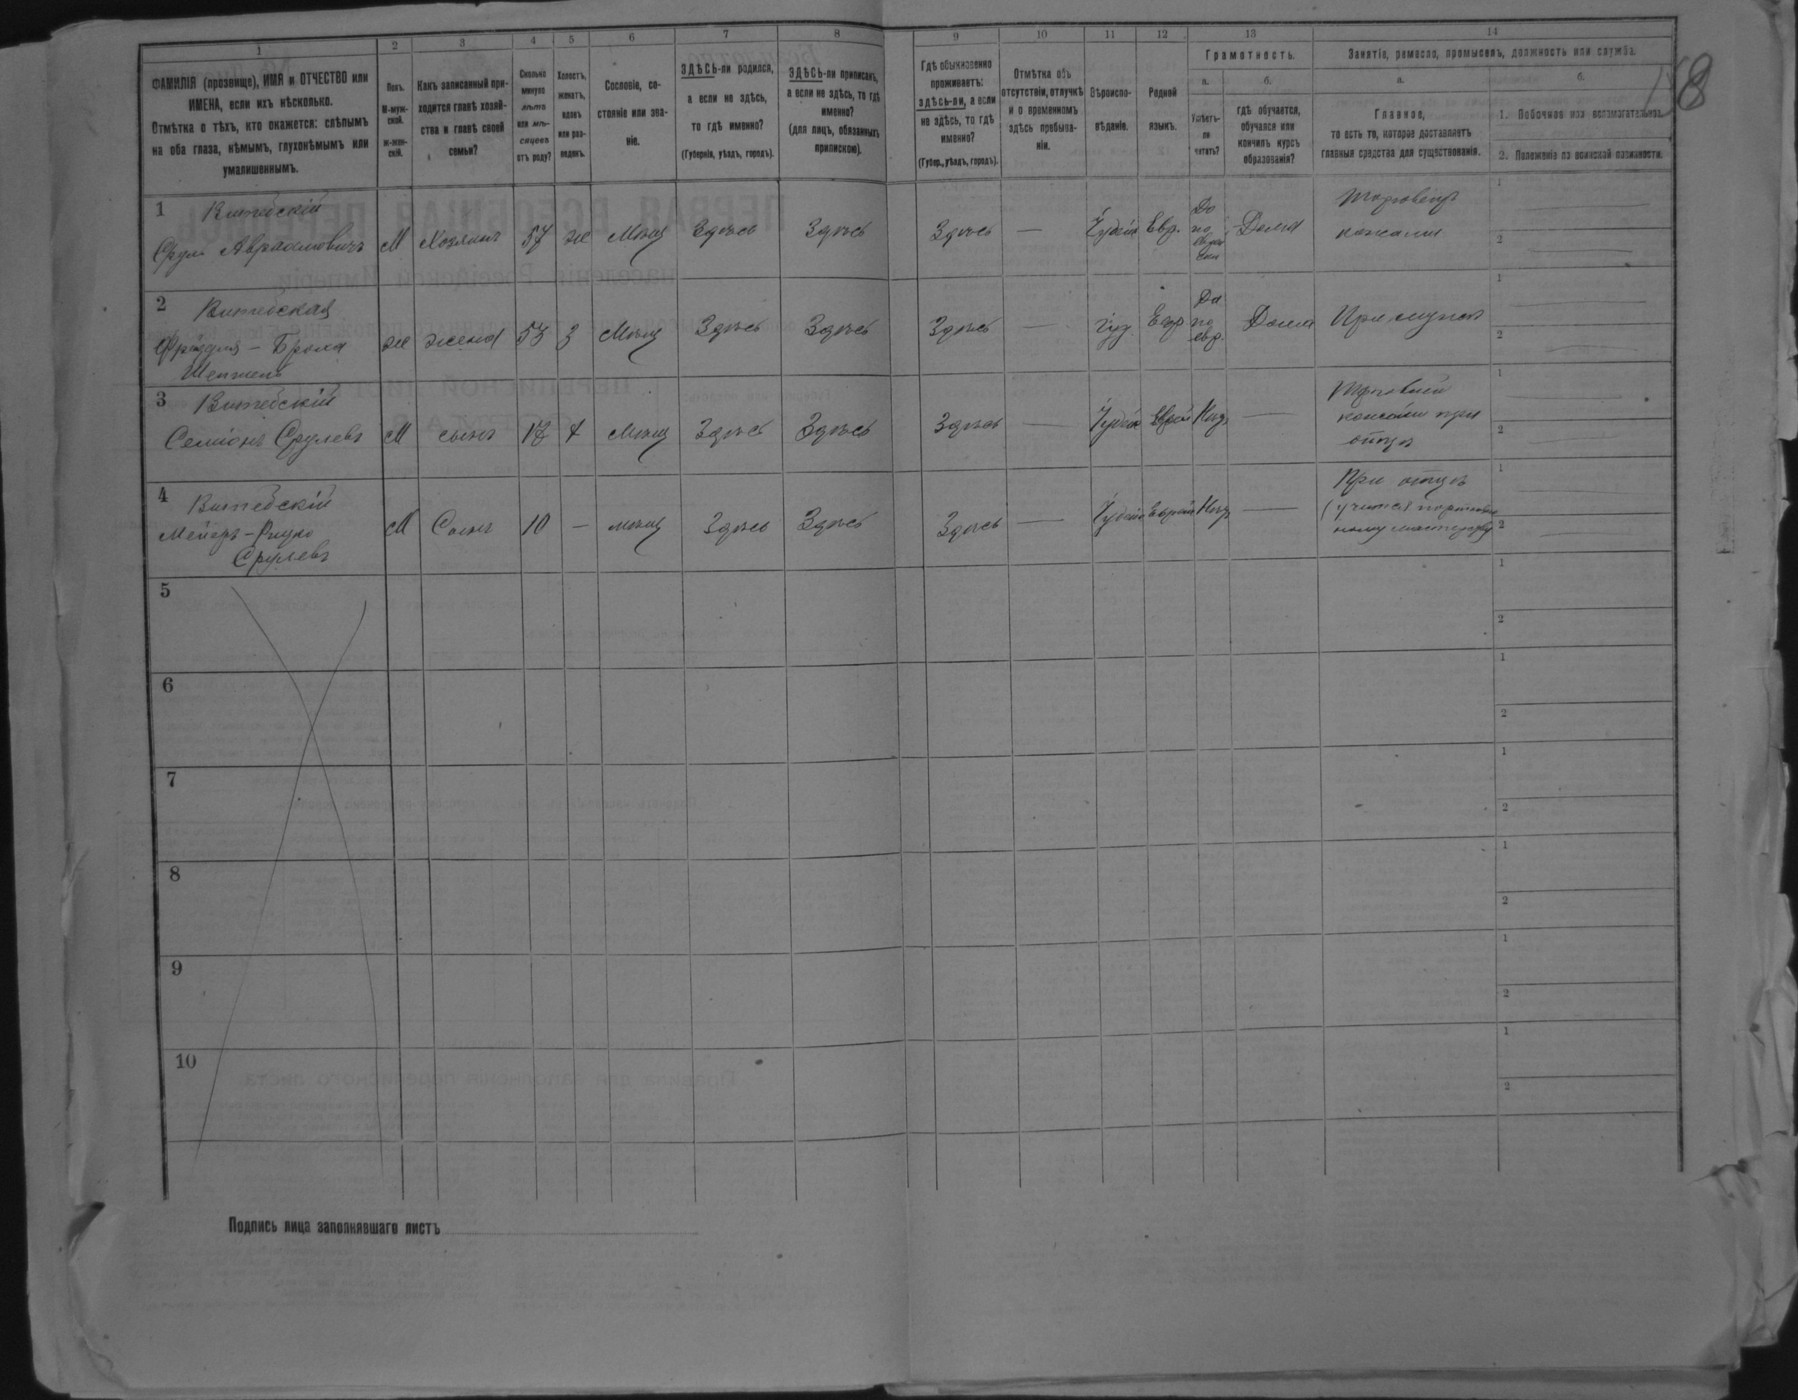 1 2 3 4 5 6 7 8 9 10 11 12 13 14
ФАМИЛІЯ (прозвище), ИМЯ и ОТЧЕСТВО или
ИМЕНА, если ихъ нѣсколько.
Отмѣтка о тѣхъ, кто окажется: слѣпымъ
на оба глаза, нѣмымъ, глухонѣмымъ или
умалишеннымъ.
Полъ.
М-муж-
ской.
ж-жен-
скій.
Какъ записанный при-
ходится главѣ хозяй-
ства и главѣ своей
семьи?
Сколько
минуло
лѣтъ
или мѣ-
сяцевъ
отъ роду?
Холостъ,
женатъ,
вдовъ
или раз-
веденъ.
Сословіе, со-
стояніе или зва-
ніе.
ЗДѢСЬ-ли родился,
а если не здѣсь,
то гдѣ именно?
(Губернія, уѣздъ, городъ).
ЗДѢСЬ-ли приписанъ,
а если не здѣсь, то гдѣ
именно?
(для лицъ, обязанныхъ
припискою).
Гдѣ обыкновенно
проживаетъ:
здѣсь-ли, а если
не здѣсь, то гдѣ
именно?
(Губер., уѣздъ, городъ).
Отмѣтка объ
отсутствіи, отлучкѣ
и о временномъ
здѣсь пребыва-
ніи.
Вѣроиспо-
вѣданіе.
Родной
языкъ.
Грамотность.
а.
Умѣетъ-
ли
читать?
б.
гдѣ обучается,
обучался или
кончилъ курсъ
образованія?
Занятіе, ремесло, промыселъ, должность или служба.
а.
Главное,
то есть то, которое доставляетъ
главныя средства для существованія.
б.
1. Побочное или вспомогательное.
2. Положеніе по воинской повинности.
1 Витебскій
Срулъ Авраамовичъ М Хозяинъ 57 ж Мѣщ Здѣсь Здѣсь Здѣсь — Іудей Евр. Да по Дома
Торговецъ
кожами
2 Витебская
Фрейдля - Брона ж жена 53 з Мѣщ Здѣсь Здѣсь Здѣсь — Іуд Евр Да по евр. Дома При мужѣ
3 Витебскій
Семіонъ Срулевъ М сынъ 17 х Мѣщ Здѣсь Здѣсь Здѣсь — Іудей Еврей —
кожами при
отцѣ
4 Витебскій
Мейеръ - Срулевъ М Сынъ 10 — мѣщ Здѣсь Здѣсь Здѣсь — Іудей Еврей —
При отцѣ
(учится портнов
ному мастерству
5
6
7
8
9
10
Подпись лица заполнявшаго листъ